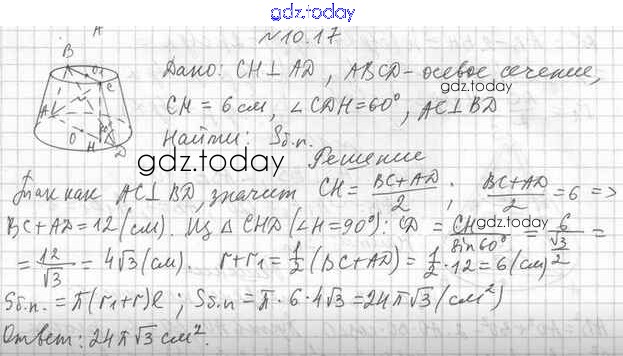 gdz.today
№10.17
Дано: CH⊥AD, ABCD-осевое сечение,
CH = 6 см, ∠CDH=60°, AC⊥BD
Найти: Sб.п.
gdz.today
Решение
Так как AC⊥BD, значит CH = (BC+AD)/2 ; (BC+AD)/2 = 6 =>
BC+AD=12(см). Из △CHD(∠H=90°): CD = CH/sin60° = 6/(√3/2) =
gdz.today
= 12/√3 = 4√3(см). r+r₁ = 1/2(BC+AD) = 1/2·12 = 6(см)
Sб.п. = π(r₁+r)l ; Sб.п = π·6·4√3 = 24π√3(см²)
Ответ: 24π√3 см².
B
O₁
C
A
O
H
60°
D